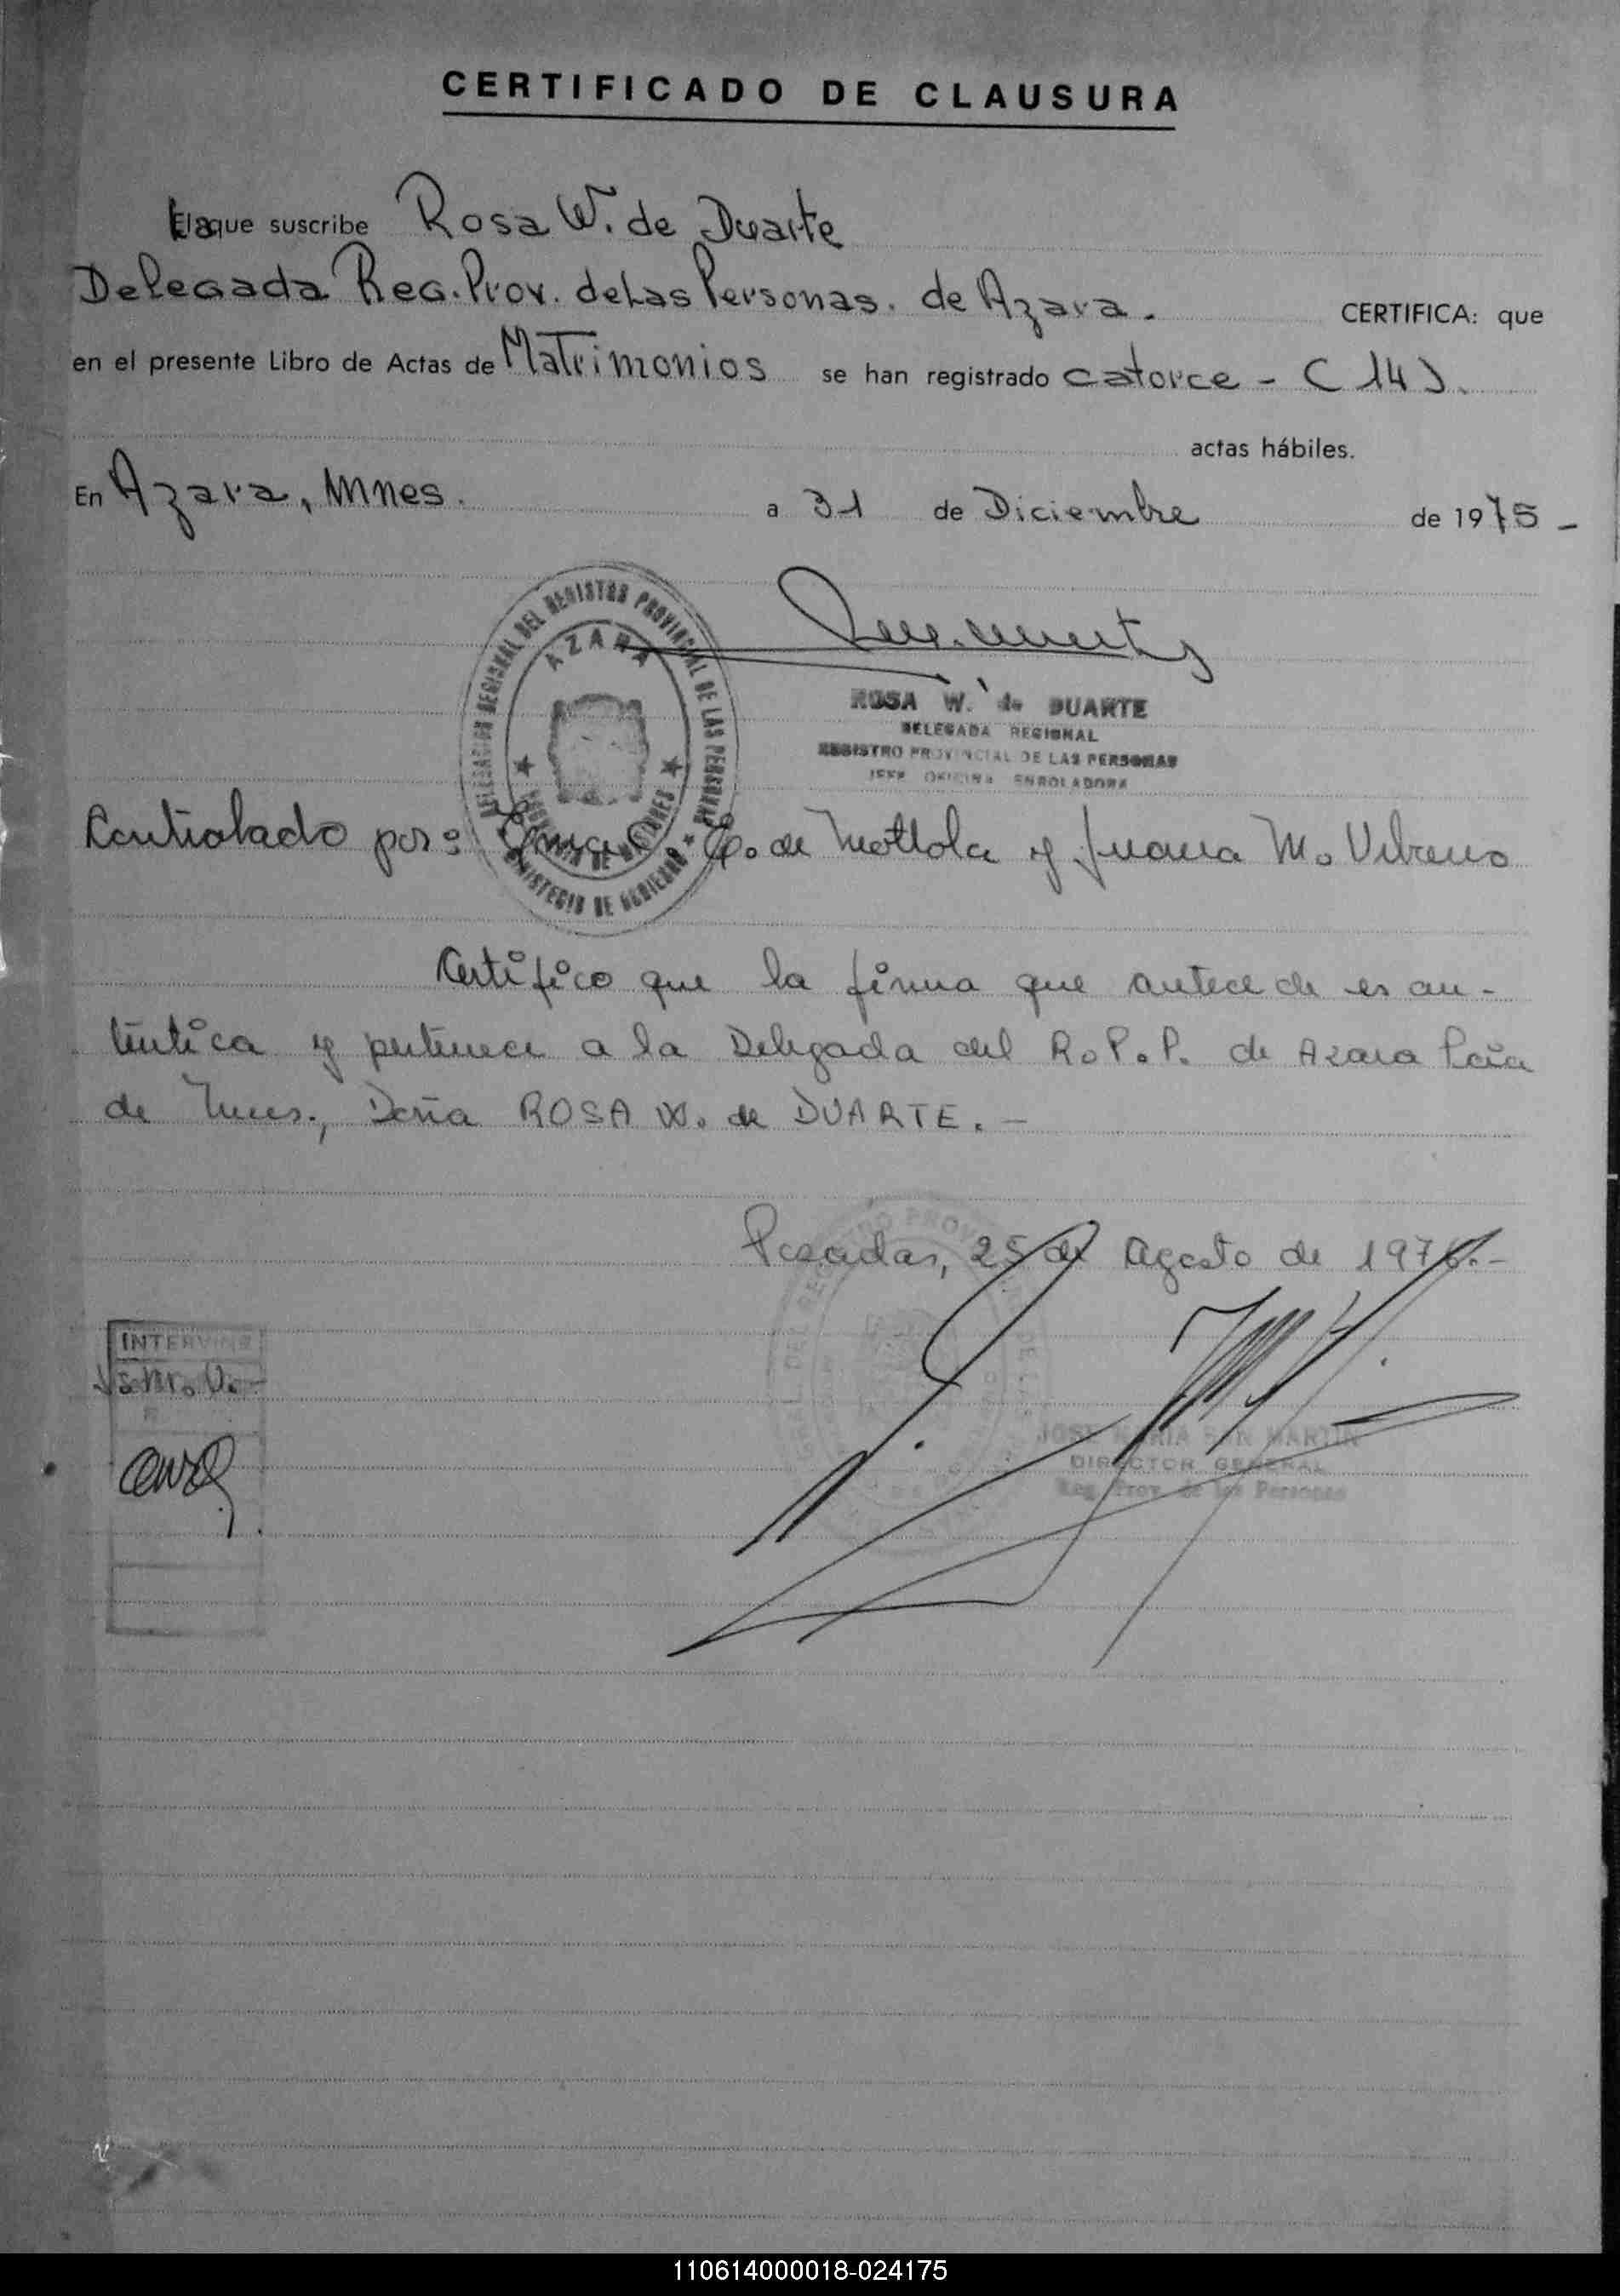 CERTIFICADO DE CLAUSURA
La que suscribe Rosa W. de Duarte
Delegada Reg. Prov. de Las Personas. de Azara. CERTIFICA: que
en el presente Libro de Actas de Matrimonios se han registrado catorce - (14).
actas hábiles.
En Azara, Mnes. a 31 de Diciembre de 1975 -
DELEGACION REGIONAL DEL REGISTRO PROVINCIAL DE LAS PERSONAS
AZARA
MINISTERIO DE GOBIERNO
ROSA W. de DUARTE
DELEGADA REGIONAL
REGISTRO PROVINCIAL DE LAS PERSONAS
JEFE OFICINA ENROLADORA
Controlado por: E. de Mottola y Juana M. 
Certifico que la firma que antecede es au-
téntica y pertenece a la Delegada del R.P.P. de Azara Pcia
de Mnes., Doña ROSA W. de DUARTE. -
Posadas, 25 de Agosto de 1976.-
INTERVINO
JOSE MARIA SAN MARTIN
DIRECTOR GENERAL
Reg. Prov. de las Personas
110614000018-024175